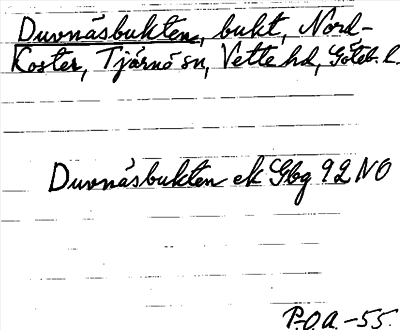 Duvnäsbukten, bukt, Nord-
Koster, Tjärnö sn, Vette hd, Göteb. l.
Duvnäsbukten ek Gbg 92 NO
P.O.A.-55.